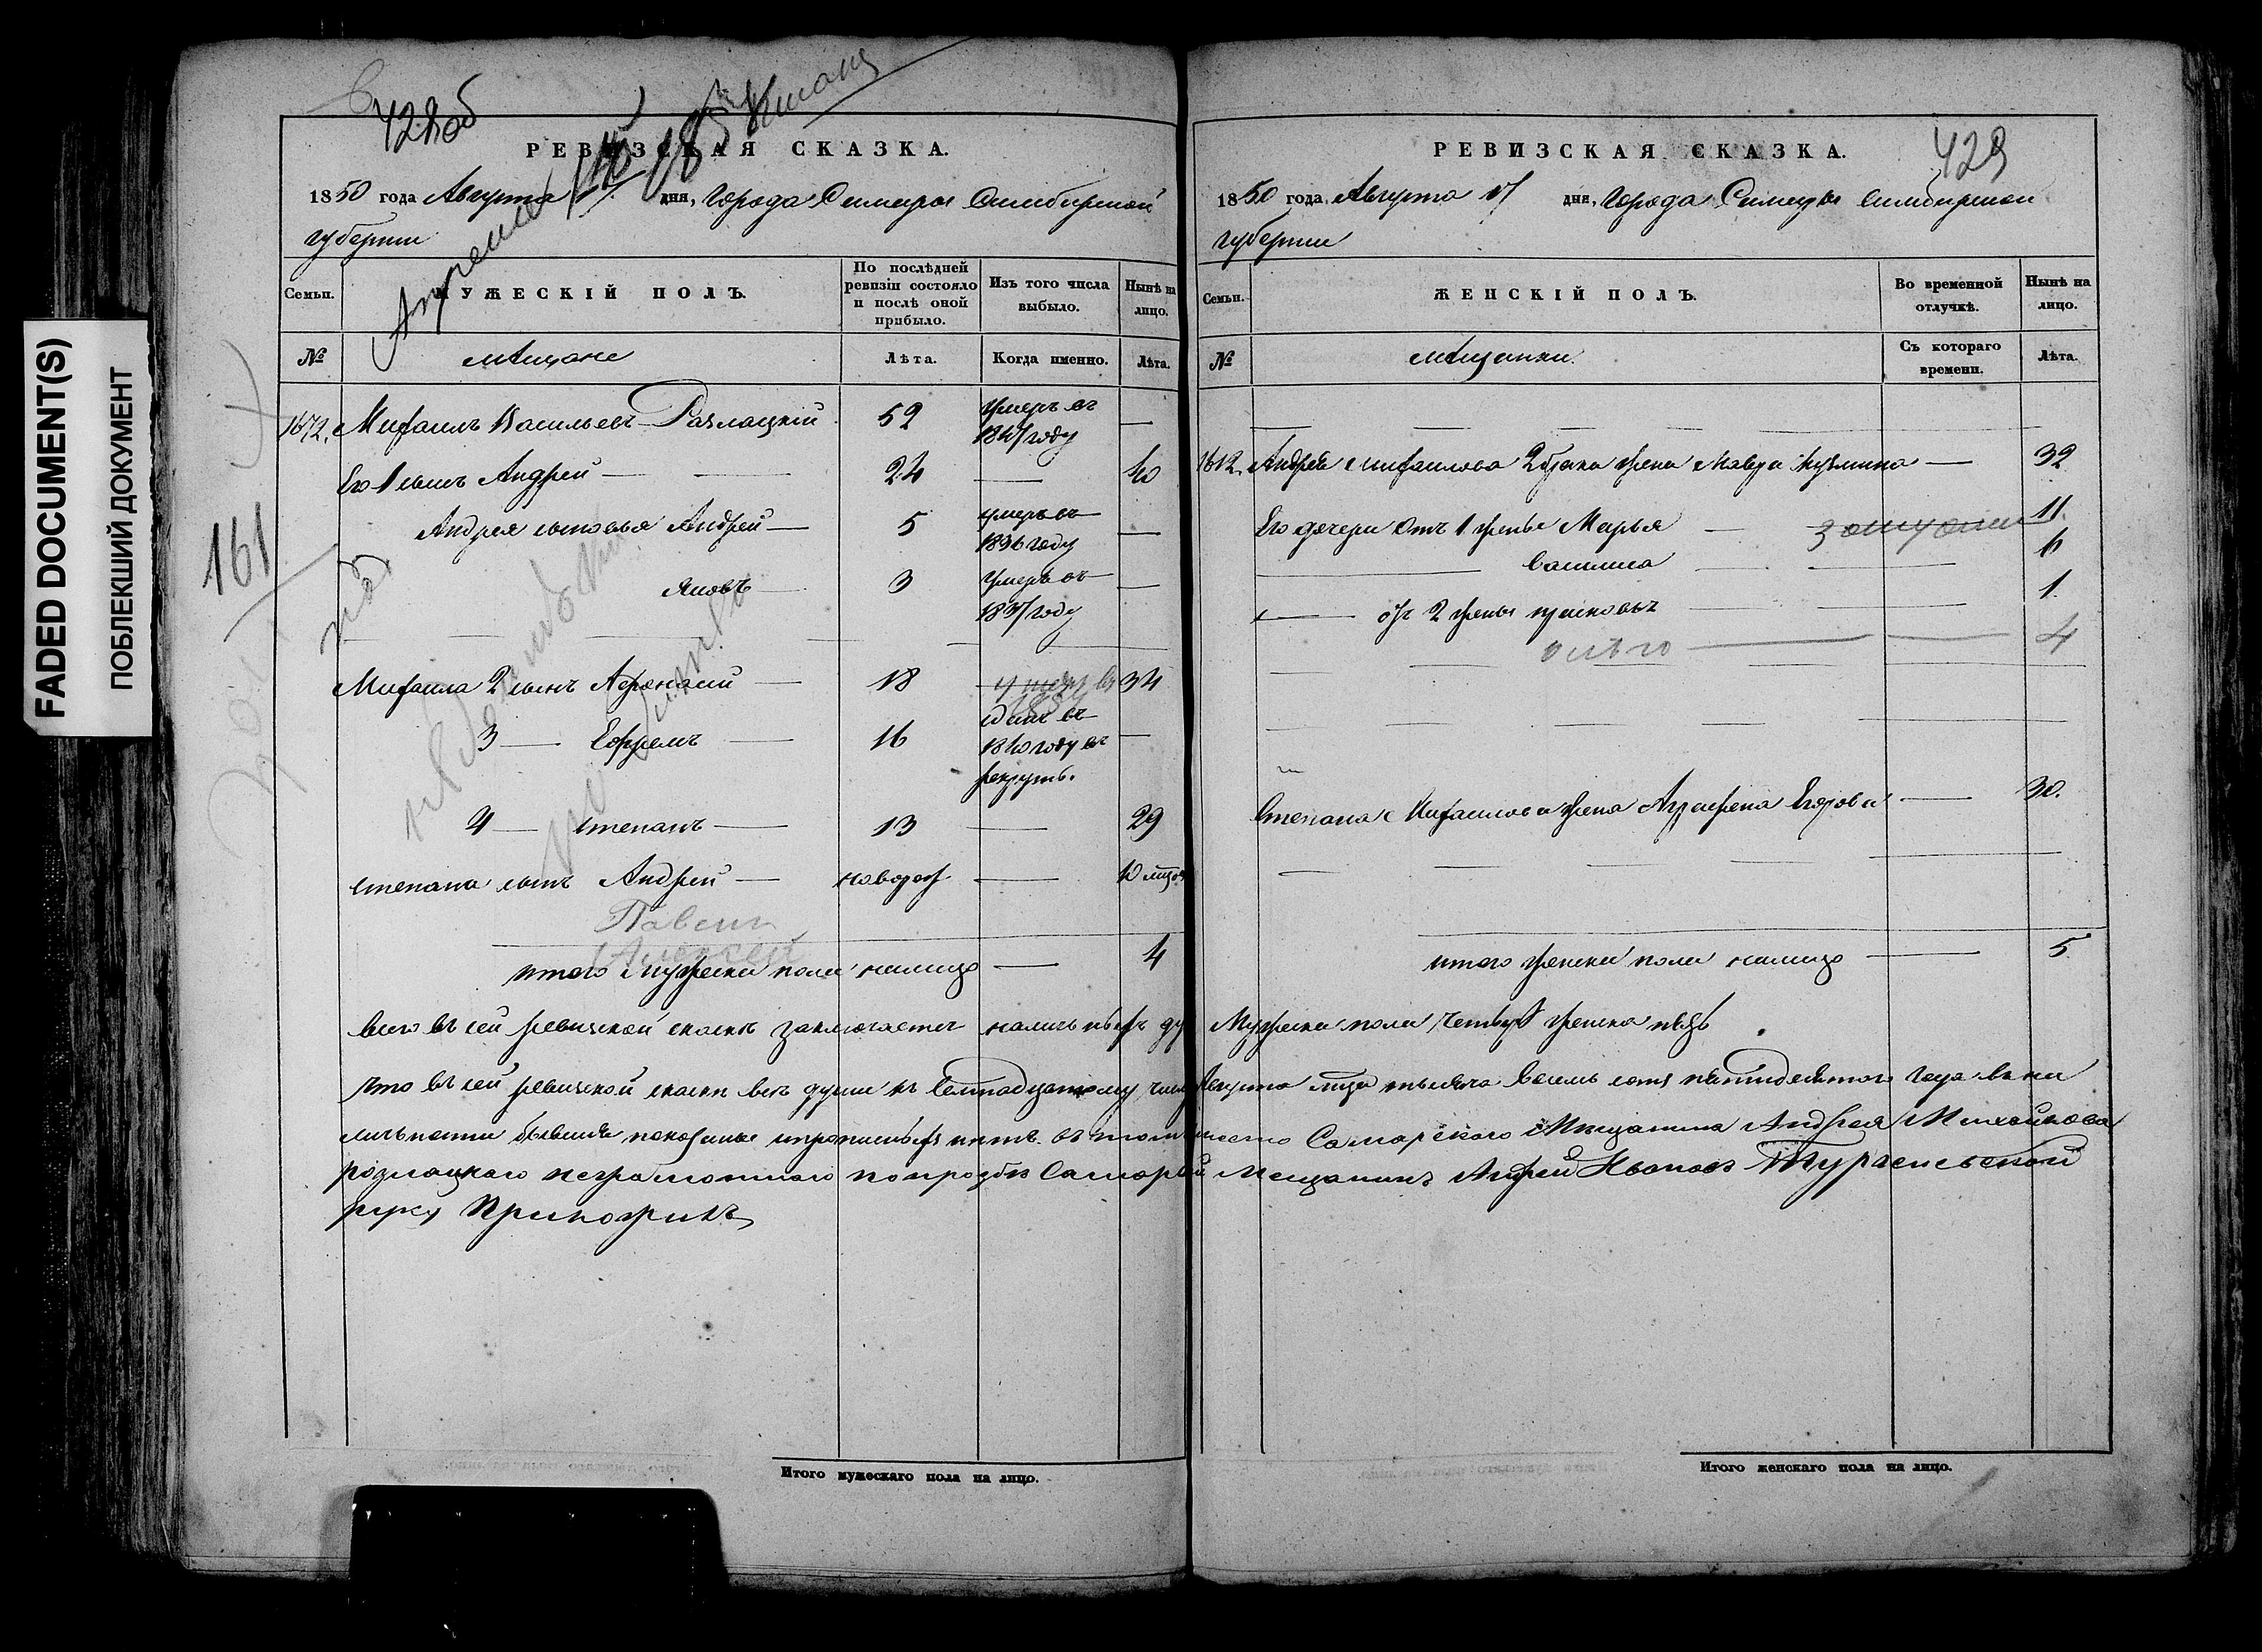 FADED DOCUMENT(S)
ПОБЛЕКШИЙ ДОКУМЕНТ
161
428об
РЕВИЗСКАЯ СКАЗКА.
1850 года Августа 17 дня, Города Самары Симбирской
губернии
Семьи. МУЖЕСКІЙ ПОЛЪ. По послѣдней ревизіи состояло и послѣ оной прибыло. Изъ того числа выбыло. Нынѣ на лицо.
№ Мещане Лѣта. Когда именно. Лѣта.
1672. Михаилъ Васильевъ Разлацкій 52 умеръ въ 1847 году —
Его 1 сынъ Андрей — — 24 — 40
Андрея сыновья Андрей — 5 умеръ въ 1836 году —
Яковъ — 3 умеръ въ 1837 году —
Михаила 2 сынъ Афонасий — 18 — 34
3 — Ефремъ — 16 сданъ въ 1840 году въ рекруты. —
4 — Степанъ — 13 — 29
Степана сынъ Андрей — новорож — 10 мцов
Павелъ
Алексей
итого мужеска пола налицо — 4
429
РЕВИЗСКАЯ СКАЗКА.
1850 года Августа 17 дня, Города Самары Симбирской
губернии
Семьи. ЖЕНСКІЙ ПОЛЪ. Во временной отлучкѣ. Нынѣ на лицо.
№ Мещанки. Съ котораго времени. Лѣта.
1612. Андрея Михаилова 2 брака жена Мавра Кузмина — 32
Его дочери отъ 1 жены Марья — 11
Василиса 6
отъ 2 жены 1
4
Степана Михаилова жена Аграфена Егорова — 30.
итого женска пола налицо — 5
Всего въ сей ревизской сказке заключается наличныхъ душ Мужеска пола четыре женска пять
Что въ сей ревизской сказки все души къ Семнадцатому числу Августа мца тысяча восемь сотъ пятидесятого года в на
личности бывшия показаны и прописныхъ нетъ. въ томъ место Самарского Мещанина Андрея Михайлова
розлацкаго неграмотнаго по прозбе Самарской Мещанинъ Андрей Ивановъ
руку Приложилъ
Итого мужескаго пола на лицо.
Итого женскаго пола на лицо.